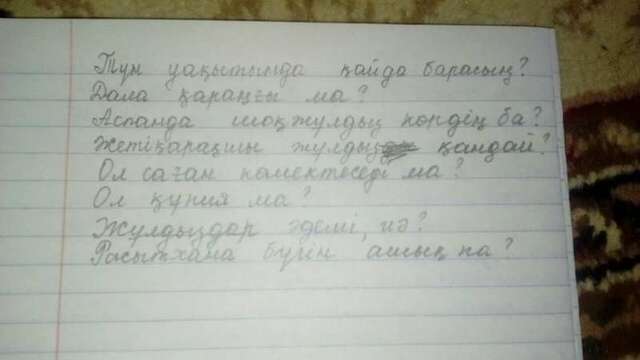 Түн уақытында қайда барасың?
Дала қараңғы ма?
Аспанда шоқжұлдыз көрдің ба?
Жетіқарақшы жұлдыз қандай?
Ол саған көмектеседі ма?
Ол құпия ма?
Жұлдыздар әдемі, иә?
Расытхана бүгін ашық па?